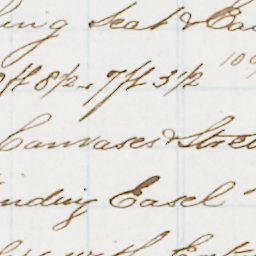 ing Seat &
ft 8½ . 7ft 3½ 10
Canvases & Stre
nding Easel
with